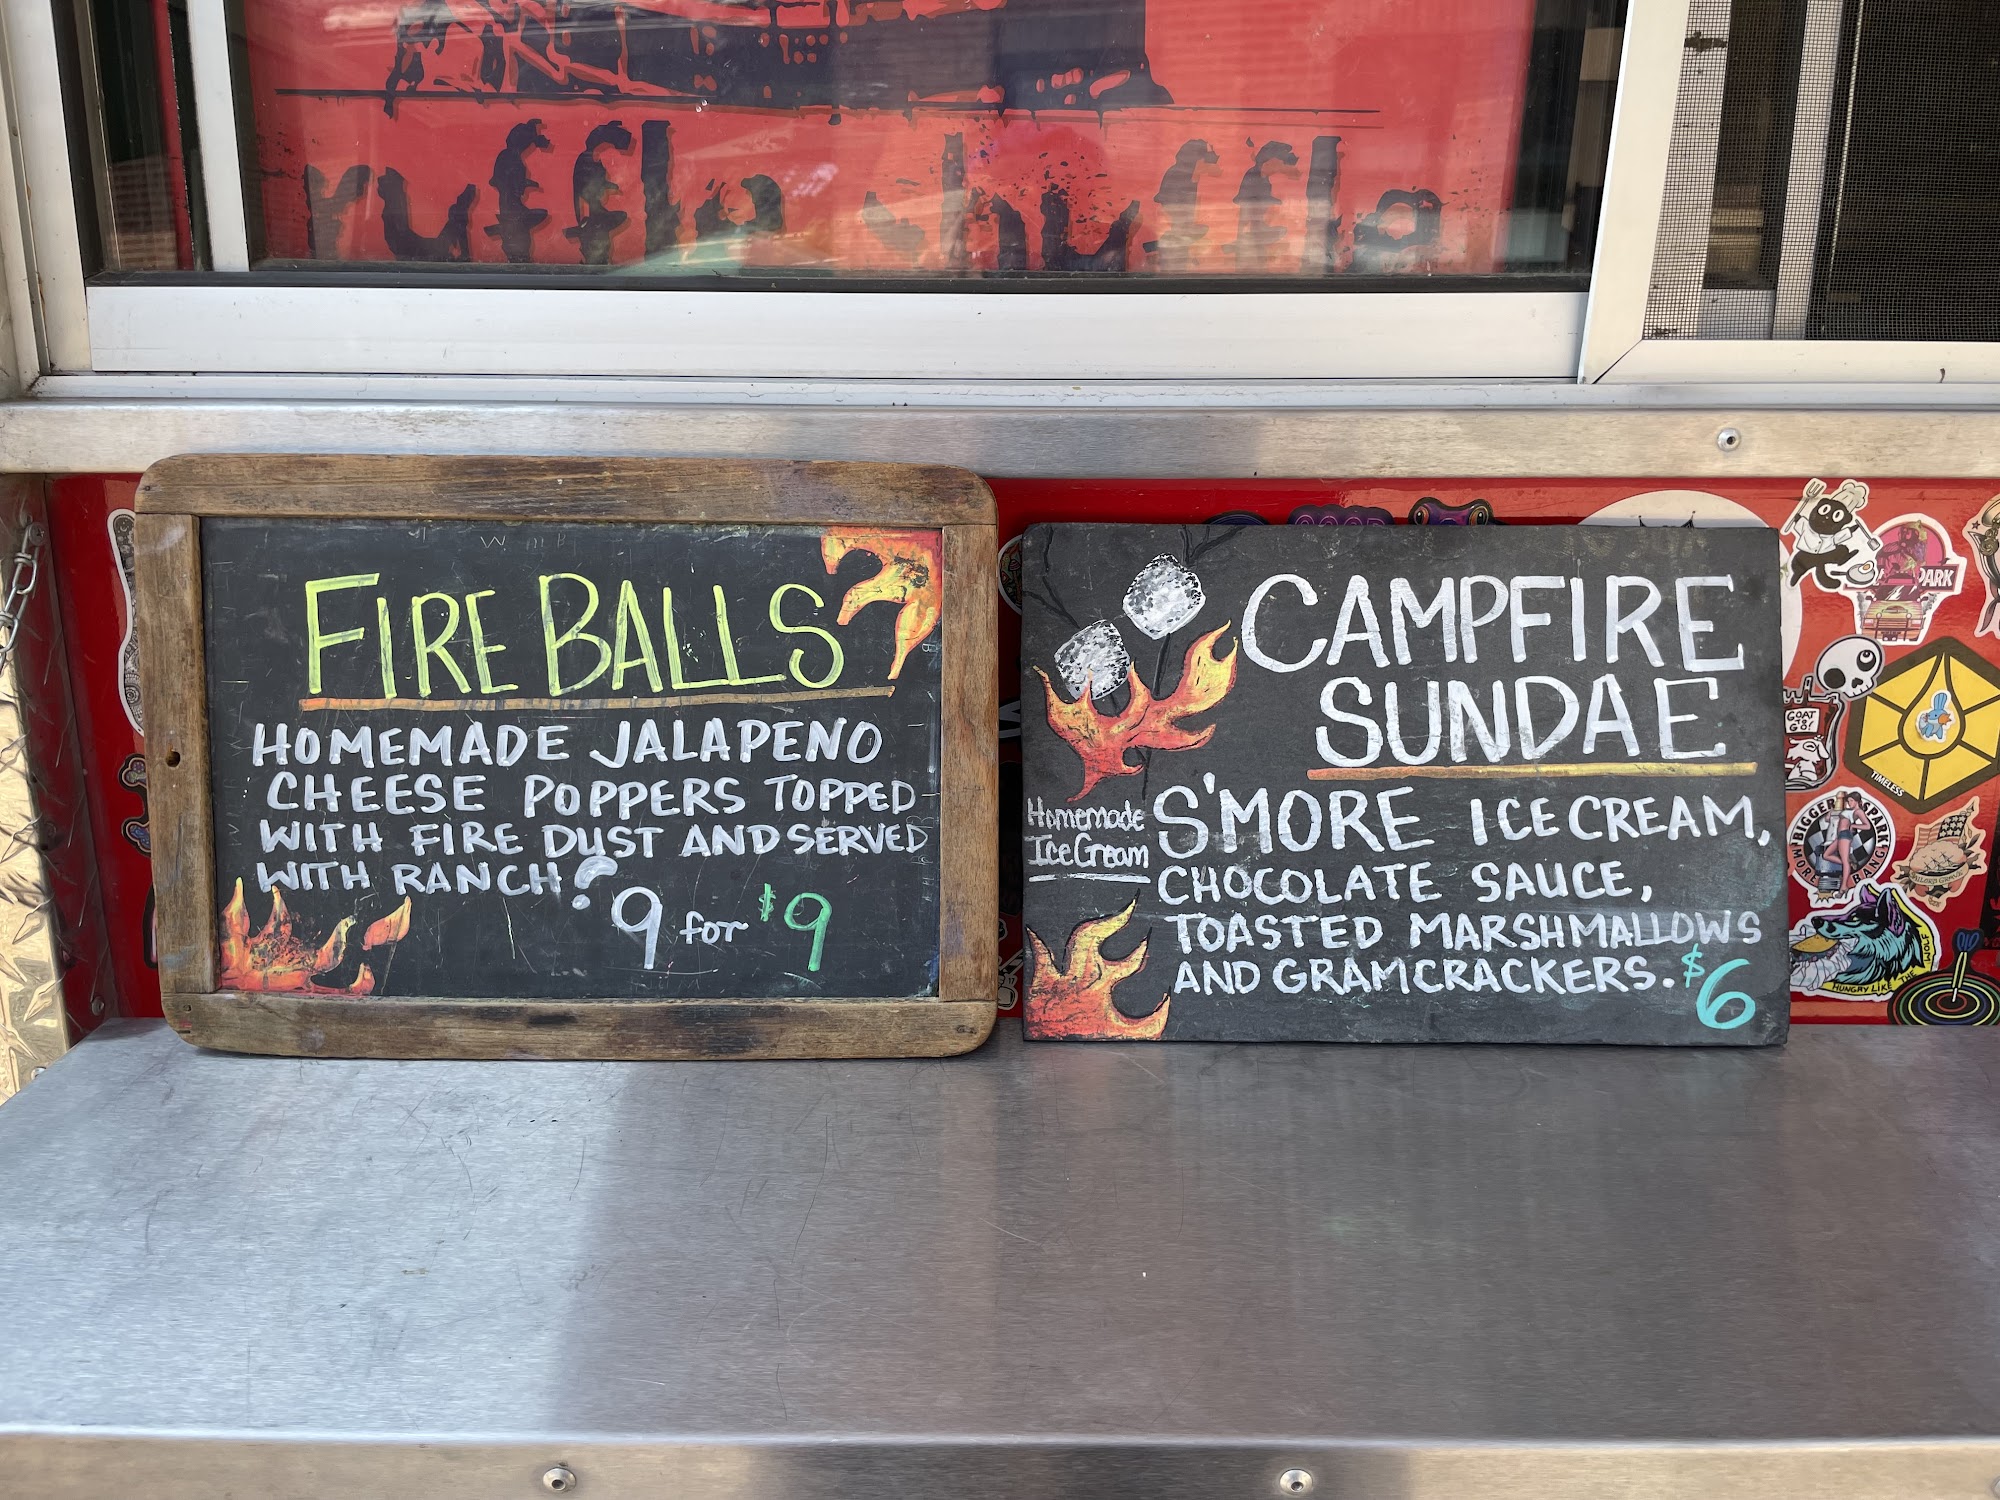 ruffle shuffle
FIRE BALLS
HOMEMADE JALAPENO
CHEESE POPPERS TOPPED
WITH FIRE DUST AND SERVED
WITH RANCH?
9 for $9
CAMPFIRE
SUNDAE
Homemade
Ice Cream
S'MORE ICE CREAM,
CHOCOLATE SAUCE,
TOASTED MARSHMALLOWS
AND GRAMCRACKERS. $6
GOOD
PARK
GOAT
TIMELESS
BIGGER SPARK
MORE BANG
HUNGRY LIKE THE WOLF